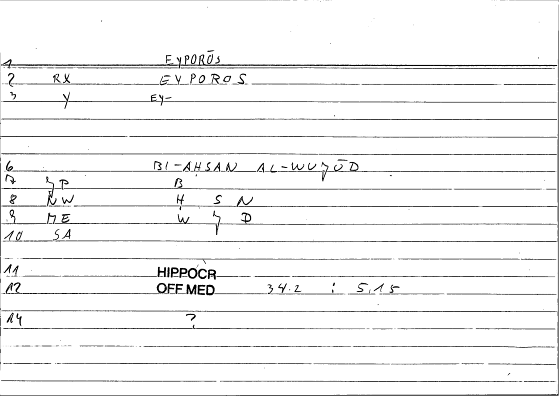 1 EYPORŌS
2 RX EYPOROS
3 Y EY-
6 BI-AHSAN AL-WUǦŪD
7 ǦP B
8 NW Ḥ S N
9 ME W Ǧ D
10 SA
11 HIPPOCR
12 OFF MED 34.2 : 5,15
14 ?